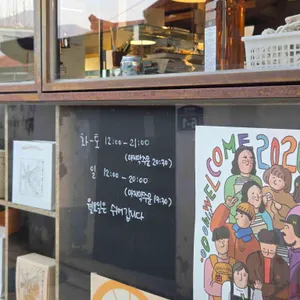 화-토 12:00-21:00
(마지막주문 20:30)
일 12:00-20:00
(마지막주문 19:30)
월요일은 쉬어갑니다
WELCOME 202